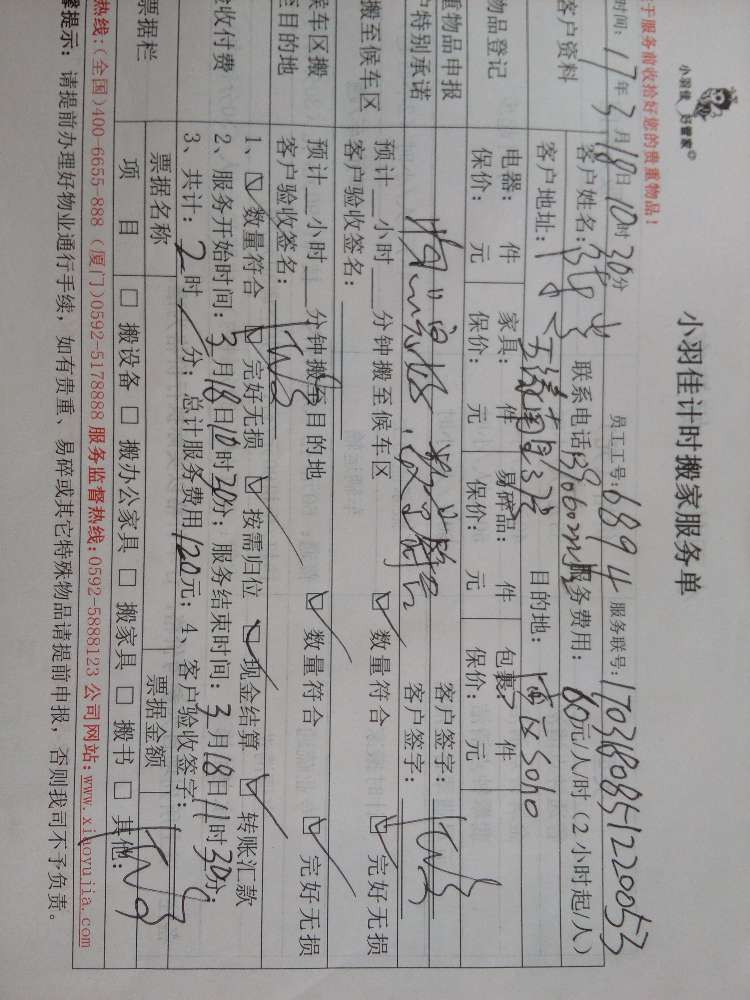 小羽佳 好管家
小羽佳计时搬家服务单
于服务前收拾好您的贵重物品!
员工工号:6894 服务联号:1703180851220053
时间: 17年3月18日10时30分
客户资料
客户姓名: 联系电话 服务费用: 60元/人/时(2小时起/人)
客户地址: 目的地: 湾区SOHO
物品登记
电器: 件 家具: 件 易碎品: 件 包裹: 件
保价: 元 保价: 元 保价: 元 保价: 元
重物品申报 客户签字:
户特别承诺 客户签字:
搬至候车区
预计__小时__分钟搬至候车区 数量符合 完好无损
客户验收签名:
候车区搬至目的地
预计__小时__分钟搬至目的地 数量符合 完好无损
客户验收签名:
验收付费
1、☑数量符合 ☑完好无损 ☑按需归位 ☑现金结算 ☑转账汇款
2、服务开始时间: 3月18日10时30分; 服务结束时间: 3月18日11时30分;
3、共计: 2时 分; 总计服务费用120元; 4、客户验收签字:
票据栏
票据名称 票据金额
项目 □搬设备 □搬办公家具 □搬家具 □搬书 □其他:
热线:(全国)400-6655-888 (厦门)0592-5178888 服务监督热线:0592-5888123 公司网站:www.xiaoyujia.com
馨提示: 请提前办理好物业通行手续, 如有贵重、易碎或其它特殊物品请提前申报, 否则我司不予负责。